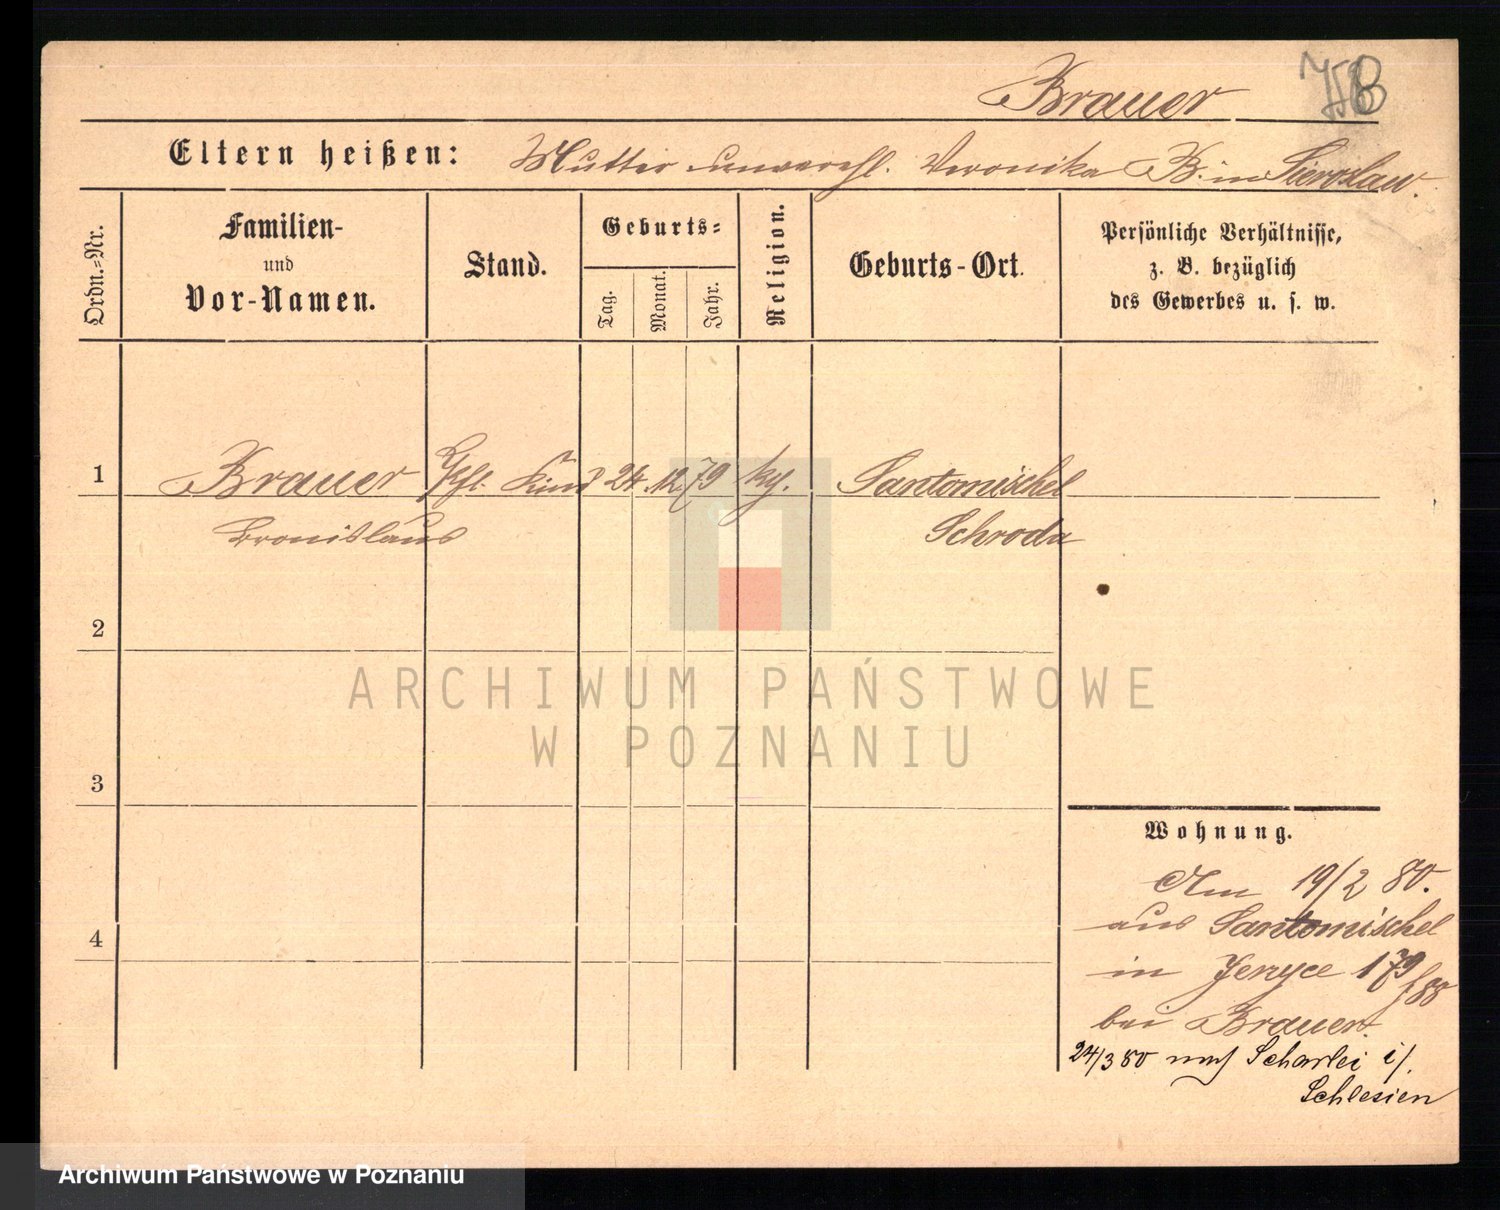 Brauer
Eltern heißen: Mutter unverehl. Veronika B. in Sieroslaw.
Ordn.=Nr.
Familien-
und
Vor-Namen.
Stand.
Geburts=
Tag.
Monat.
Jahr.
Religion.
Geburts-Ort.
Persönliche Verhältnisse,
z. B. bezüglich
des Gewerbes u. s. w.
1 Brauer Kind 24. 12. 79 Santomischel
Bronislaus Schroda
2
3
4
Wohnung.
Am 19/2 80.
aus Santomischel
in Jerzyce 179
bei Brauer.
24/3 80 nach Scharlei i/.
Schlesien
ARCHIWUM PAŃSTWOWE
W POZNANIU
Archiwum Państwowe w Poznaniu